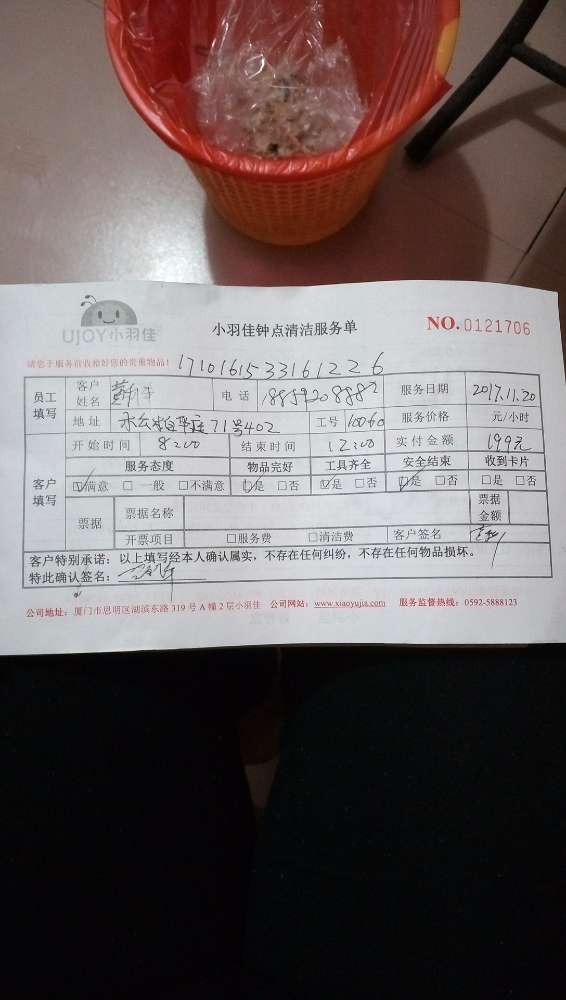 UJOY小羽佳 小羽佳钟点清洁服务单 NO.0121706
请您于服务前收检好您的贵重物品! 1710161533161226
员工填写 客户姓名 黄 电话 18859208882 服务日期 2017.11.20
地址 71号402 工号 10060 服务价格 元/小时
开始时间 8:00 结束时间 12:00 实付金额 199元
客户填写 服务态度 物品完好 工具齐全 安全结束 收到卡片
☑满意 □一般 □不满意 ☑是 □否 ☑是 □否 ☑是 □否 □是 □否
票据 票据名称 票据金额
开票项目 □服务费 □清洁费 客户签名
客户特别承诺:以上填写经本人确认属实,不存在任何纠纷,不存在任何物品损坏。
特此确认签名:
公司地址:厦门市思明区湖滨东路 319 号 A 幢 2 层小羽佳 公司网站:www.xiaoyujia.com 服务监督热线:0592-5888123